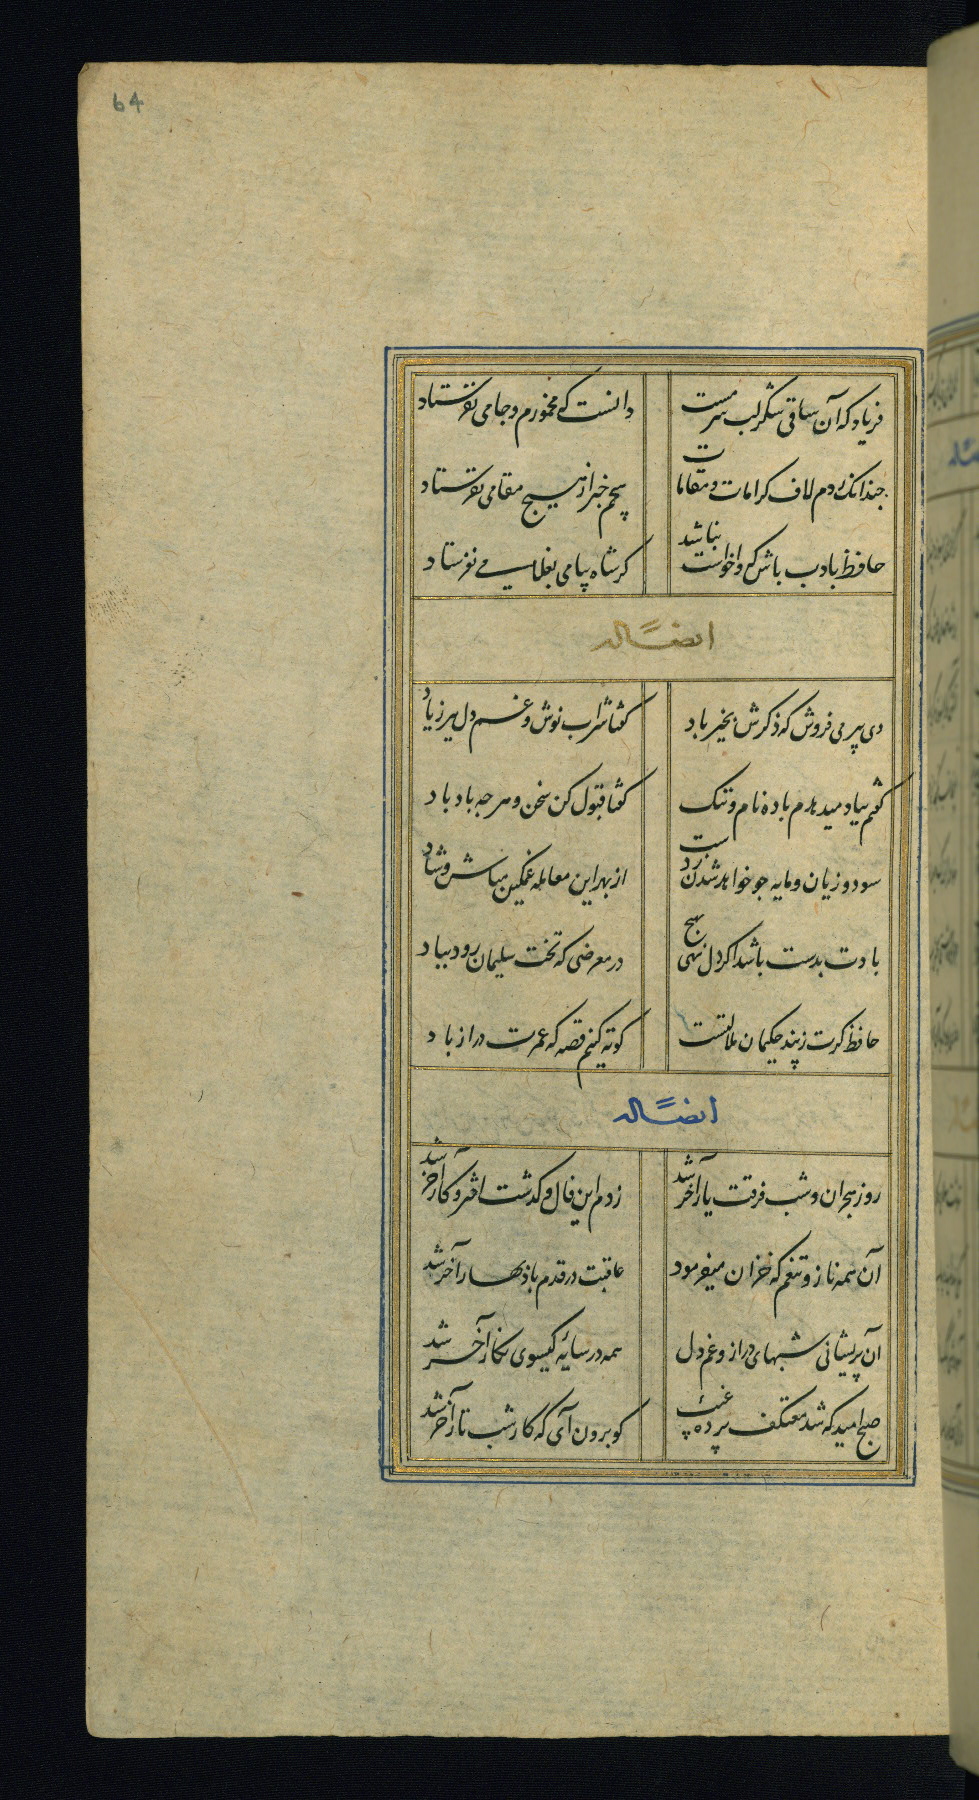 64
فریاد که آن ساقی شکرلب سرمست
دانست که مخمورم و جامی نفرستاد
چندانک زدم لاف کرامات و مقامات
هیچم خبر از هیچ مقامی نفرستاد
حافظ بادب باش که واخواست نباشد
کرشاه پیامی بغلامی نفرستاد
ایضاً له
دی پیر می فروش که ذکرش بخیر باد
کفتا شراب نوش و غم دل ببر زیاد
کفتم بباد میدهدم باده نام و ننک
کفتا قبول کن سخن و هر چه باد باد
سود و زیان و مایه چو خواهد شدن ز دست
از بهر این معامله غمکین مباش و شاد
بادت بدست باشد اکر دل نهی بهیچ
در معرضی که تخت سلیمان رود بباد
حافظ کرت ز پند حکیمان ملالتست
کوته کنیم قصه که عمرت دراز باد
ایضاً له
روز هجران و شب فرقت یار آخر شد
زدم این فال و کذشت اختر و کار آخر شد
آن همه ناز و تنعم که خزان میفرمود
عاقبت در قدم باد بهار آخر شد
آن پریشانی شبهای دراز و غم دل
همه در سایهٔ کیسوی نکار آخر شد
صبح امید که شد معتکف پردهٔ غیب
کو برون آی که کار شب تار آخر شد